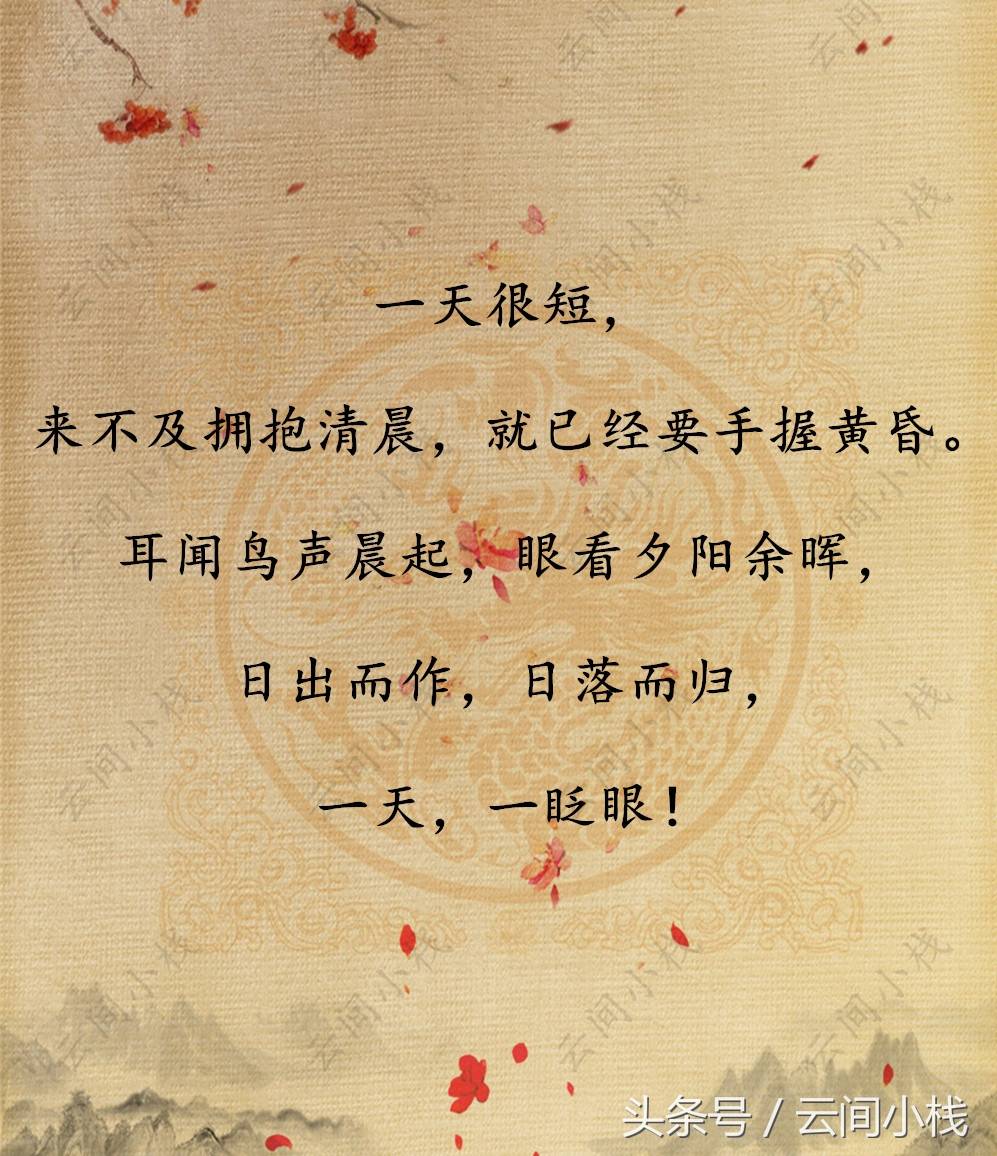 一天很短，
来不及拥抱清晨，就已经要手握黄昏。
耳闻鸟声晨起，眼看夕阳余晖，
日出而作，日落而归，
一天，一眨眼！
头条号 / 云间小栈
云间小栈